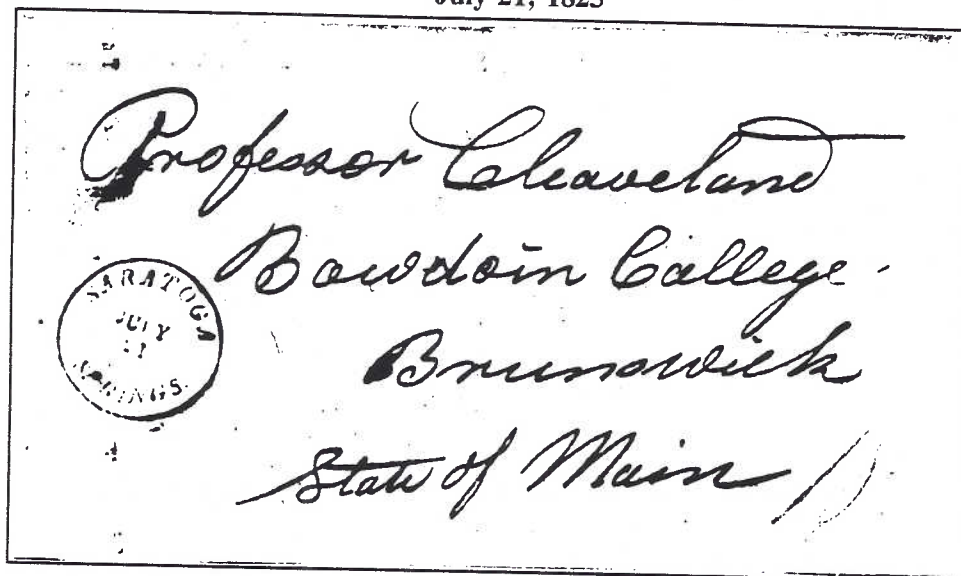 July 21, 1823
Professor Cleaveland
Bowdoin College
Brunswick
State of Main
SARATOGA
JULY
21
SPRINGS.